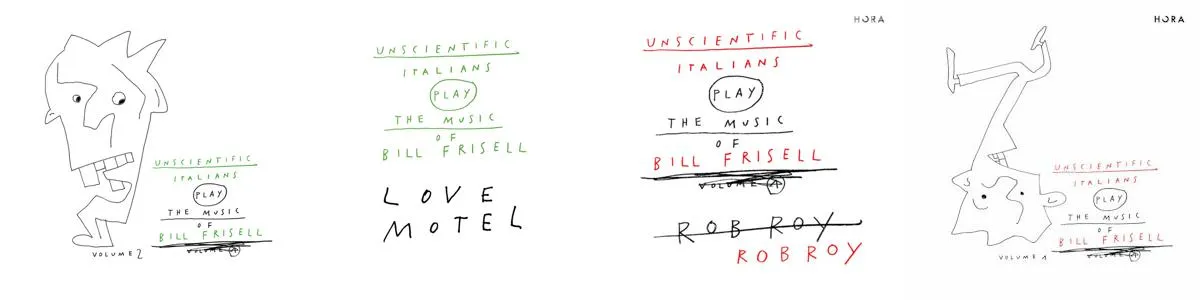 UNSCIENTIFIC
ITALIANS
PLAY
THE MUSIC
OF
BILL FRISELL
VOLUME A
VOLUME 2
UNSCIENTIFIC
ITALIANS
PLAY
THE MUSIC
OF
BILL FRISELL
LOVE
MOTEL
HORA
UNSCIENTIFIC
ITALIANS
PLAY
THE MUSIC
OF
BILL FRISELL
VOLUME A
ROB ROY
ROB ROY
HORA
UNSCIENTIFIC
ITALIANS
PLAY
THE MUSIC
OF
BILL FRISELL
VOLUME A
VOLUME 1